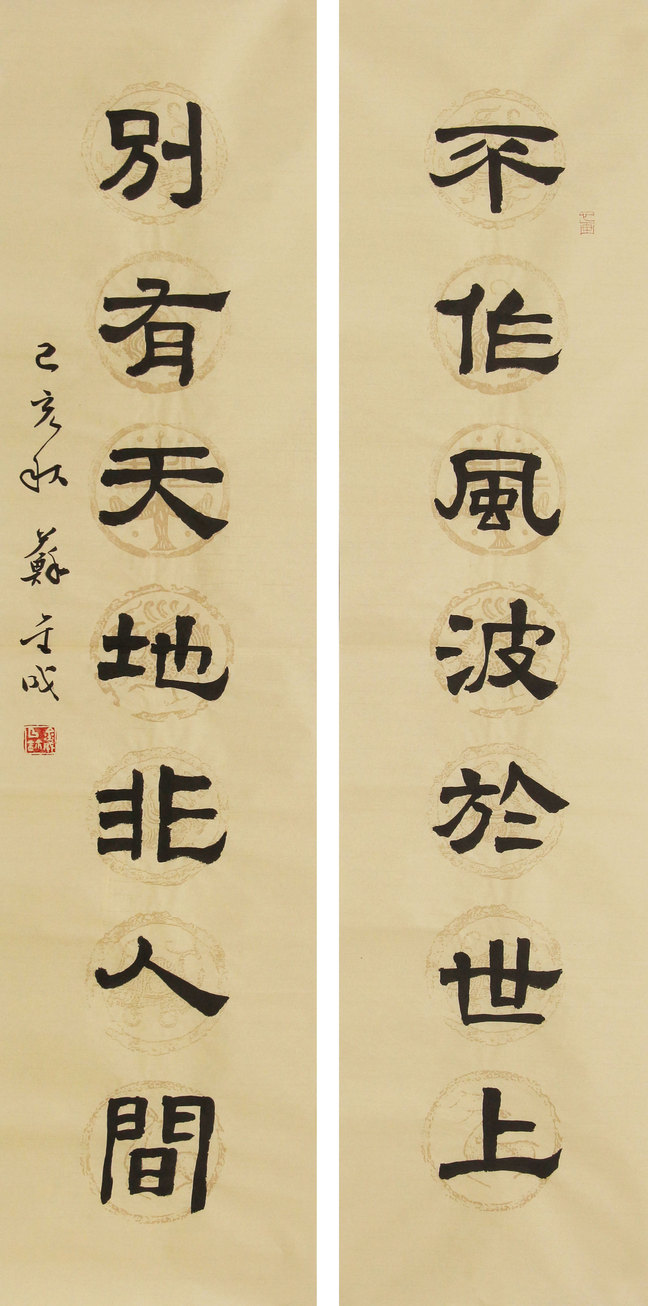 不作風波於世上
別有天地非人間
己亥秋 蘇金成